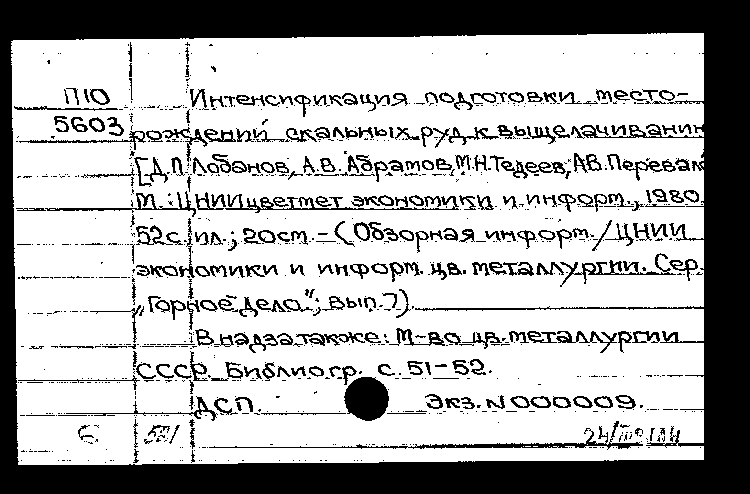 П10 Интенсификация подготовки место-
5603 рождений скальных руд к выщелачивани
[Д.П. Лобанов, А.В. Абрамов, М.Н. Тедеев, А.В. Перевал
М.: ЦНИИцветмет экономики и информ., 1980.
52с. ил.; 20см. - (Обзорная информ. / ЦНИИ
экономики и информ. цв. металлургии. Сер.
„Горное дело"; вып. 7).
В надзаг. также: М-во цв. металлургии
СССР. Библиогр. с. 51-52.
ДСП. Экз. N 000009.
6 521 24/